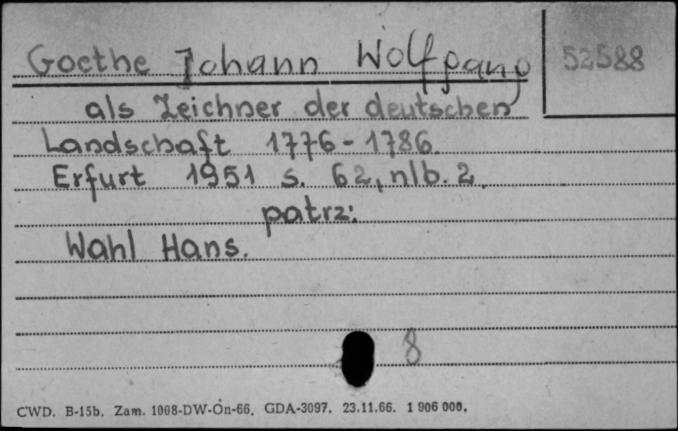 Goethe Johann Wolfgang
52588
als Zeichner der deutschen
Landschaft 1776-1786.
Erfurt 1951 s. 62, nlb. 2.
patrz:
Wahl Hans.
8
CWD. B-15b. Zam. 1008-DW-On-66. GDA-3097. 23.11.66. 1 906 000.